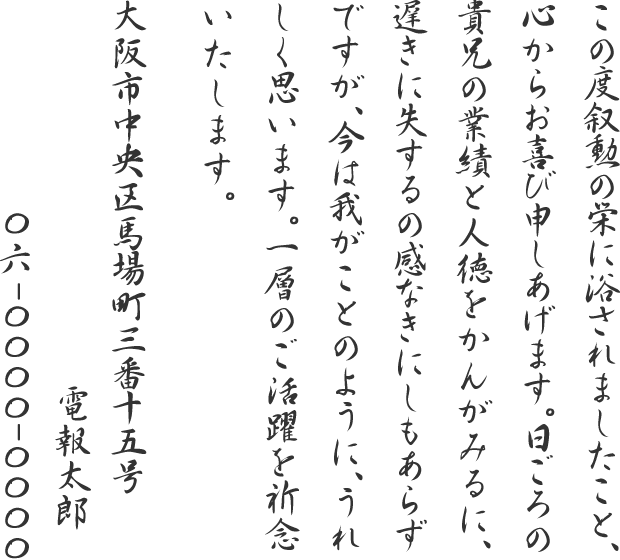 この度叙勲の栄に浴されましたこと、
心からお喜び申しあげます。日ごろの
貴兄の業績と人徳をかんがみるに、
遅きに失するの感なきにしもあらず
ですが、今は我がことのように、うれ
しく思います。一層のご活躍を祈念
いたします。
大阪市中央区馬場町三番十五号
電報太郎
〇六ー〇〇〇〇ー〇〇〇〇